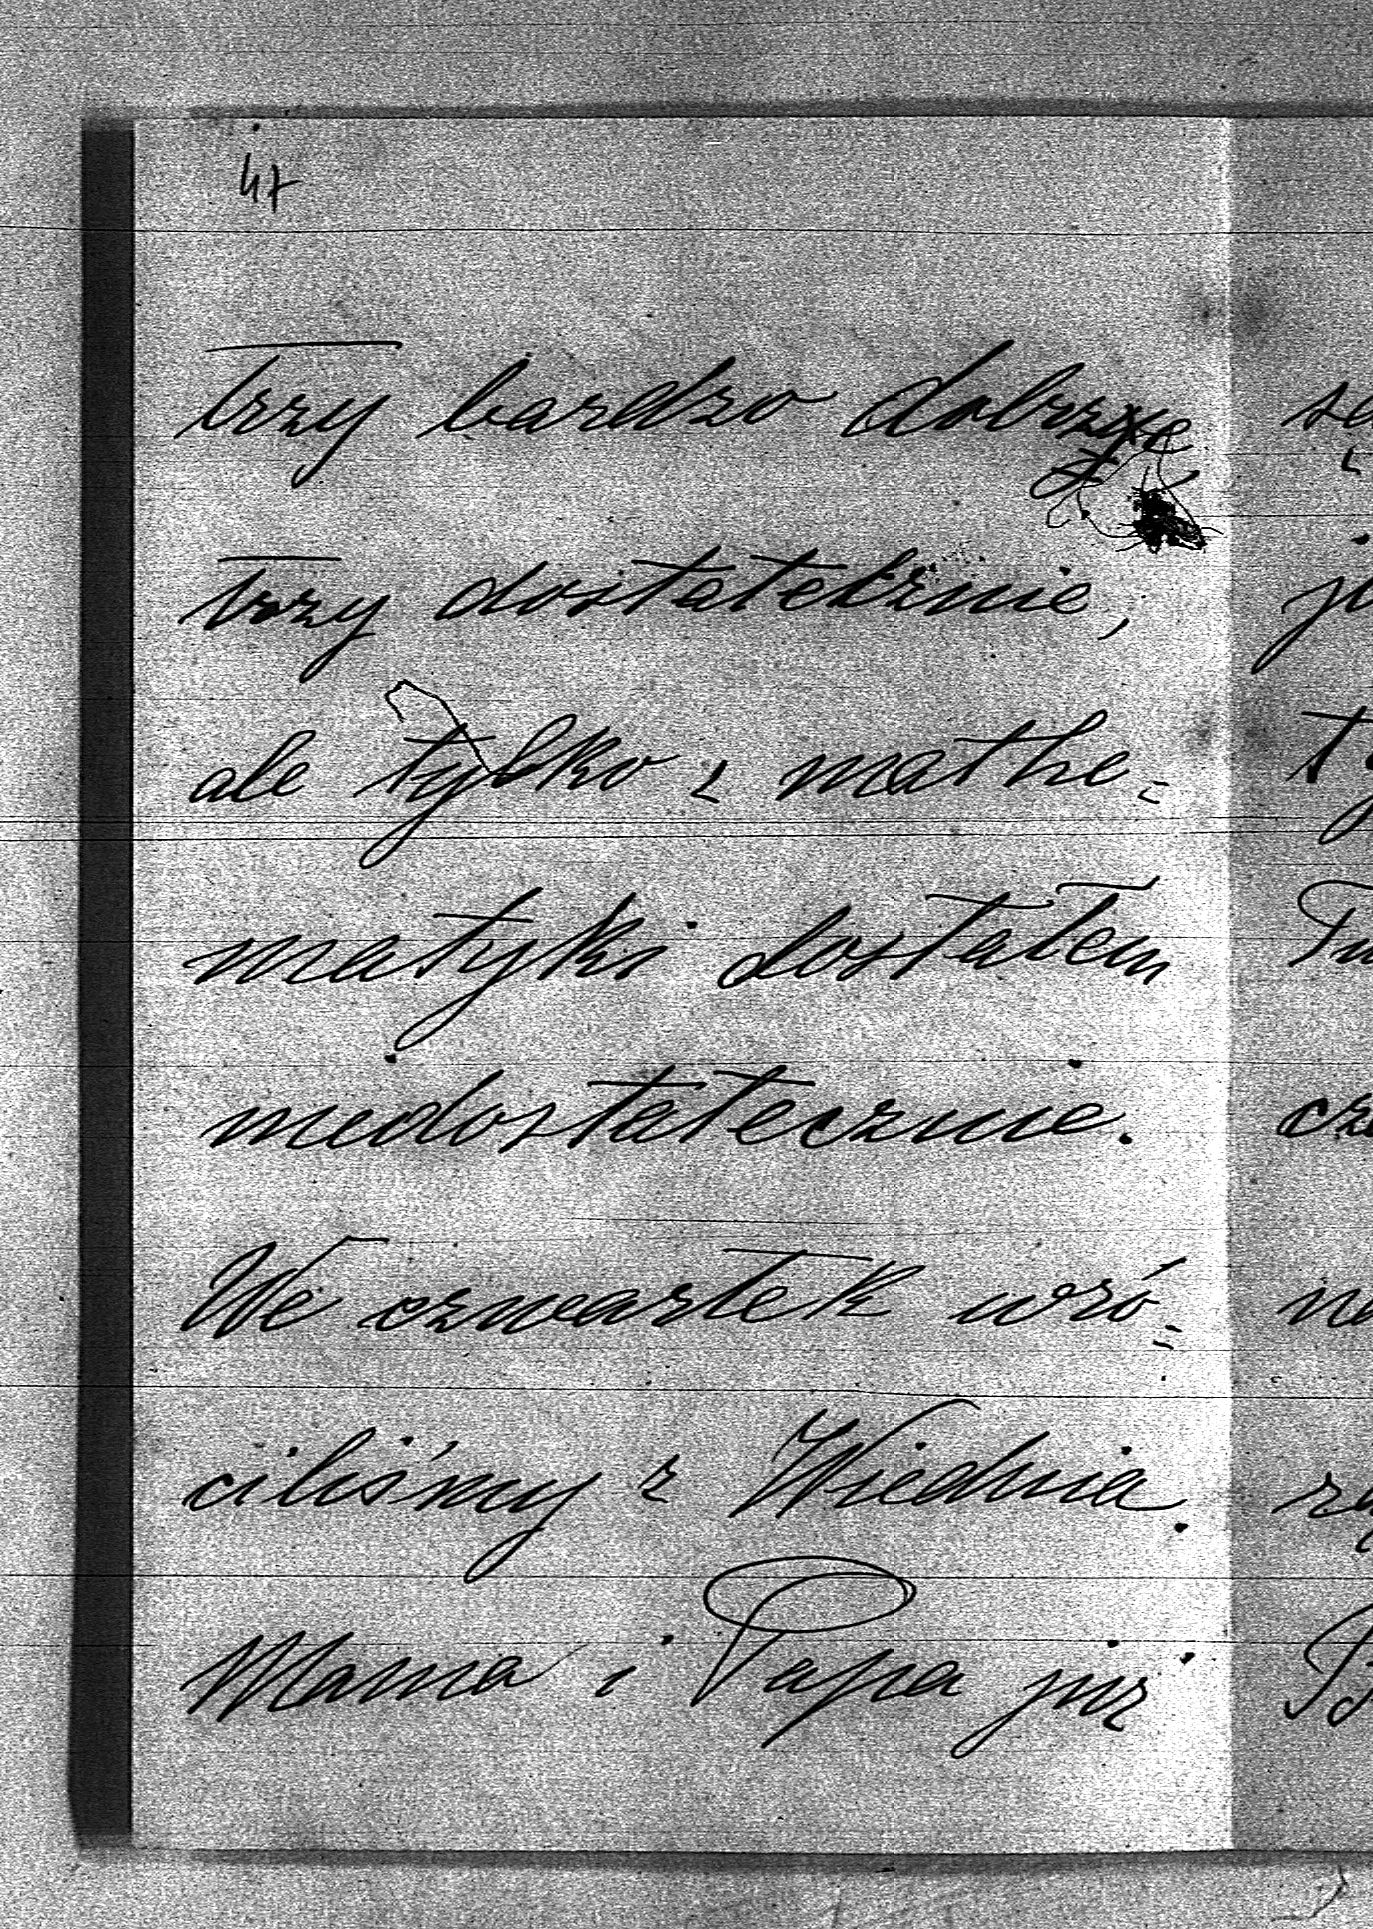 47
Trzy bardzo dobrze
i
trzy dostatecznie,
ale tylko z mathe=
matyki dostałem
niedostatecznie.
We czwartek wró=
ciliśmy z Wiednia.
Mama i Papa już